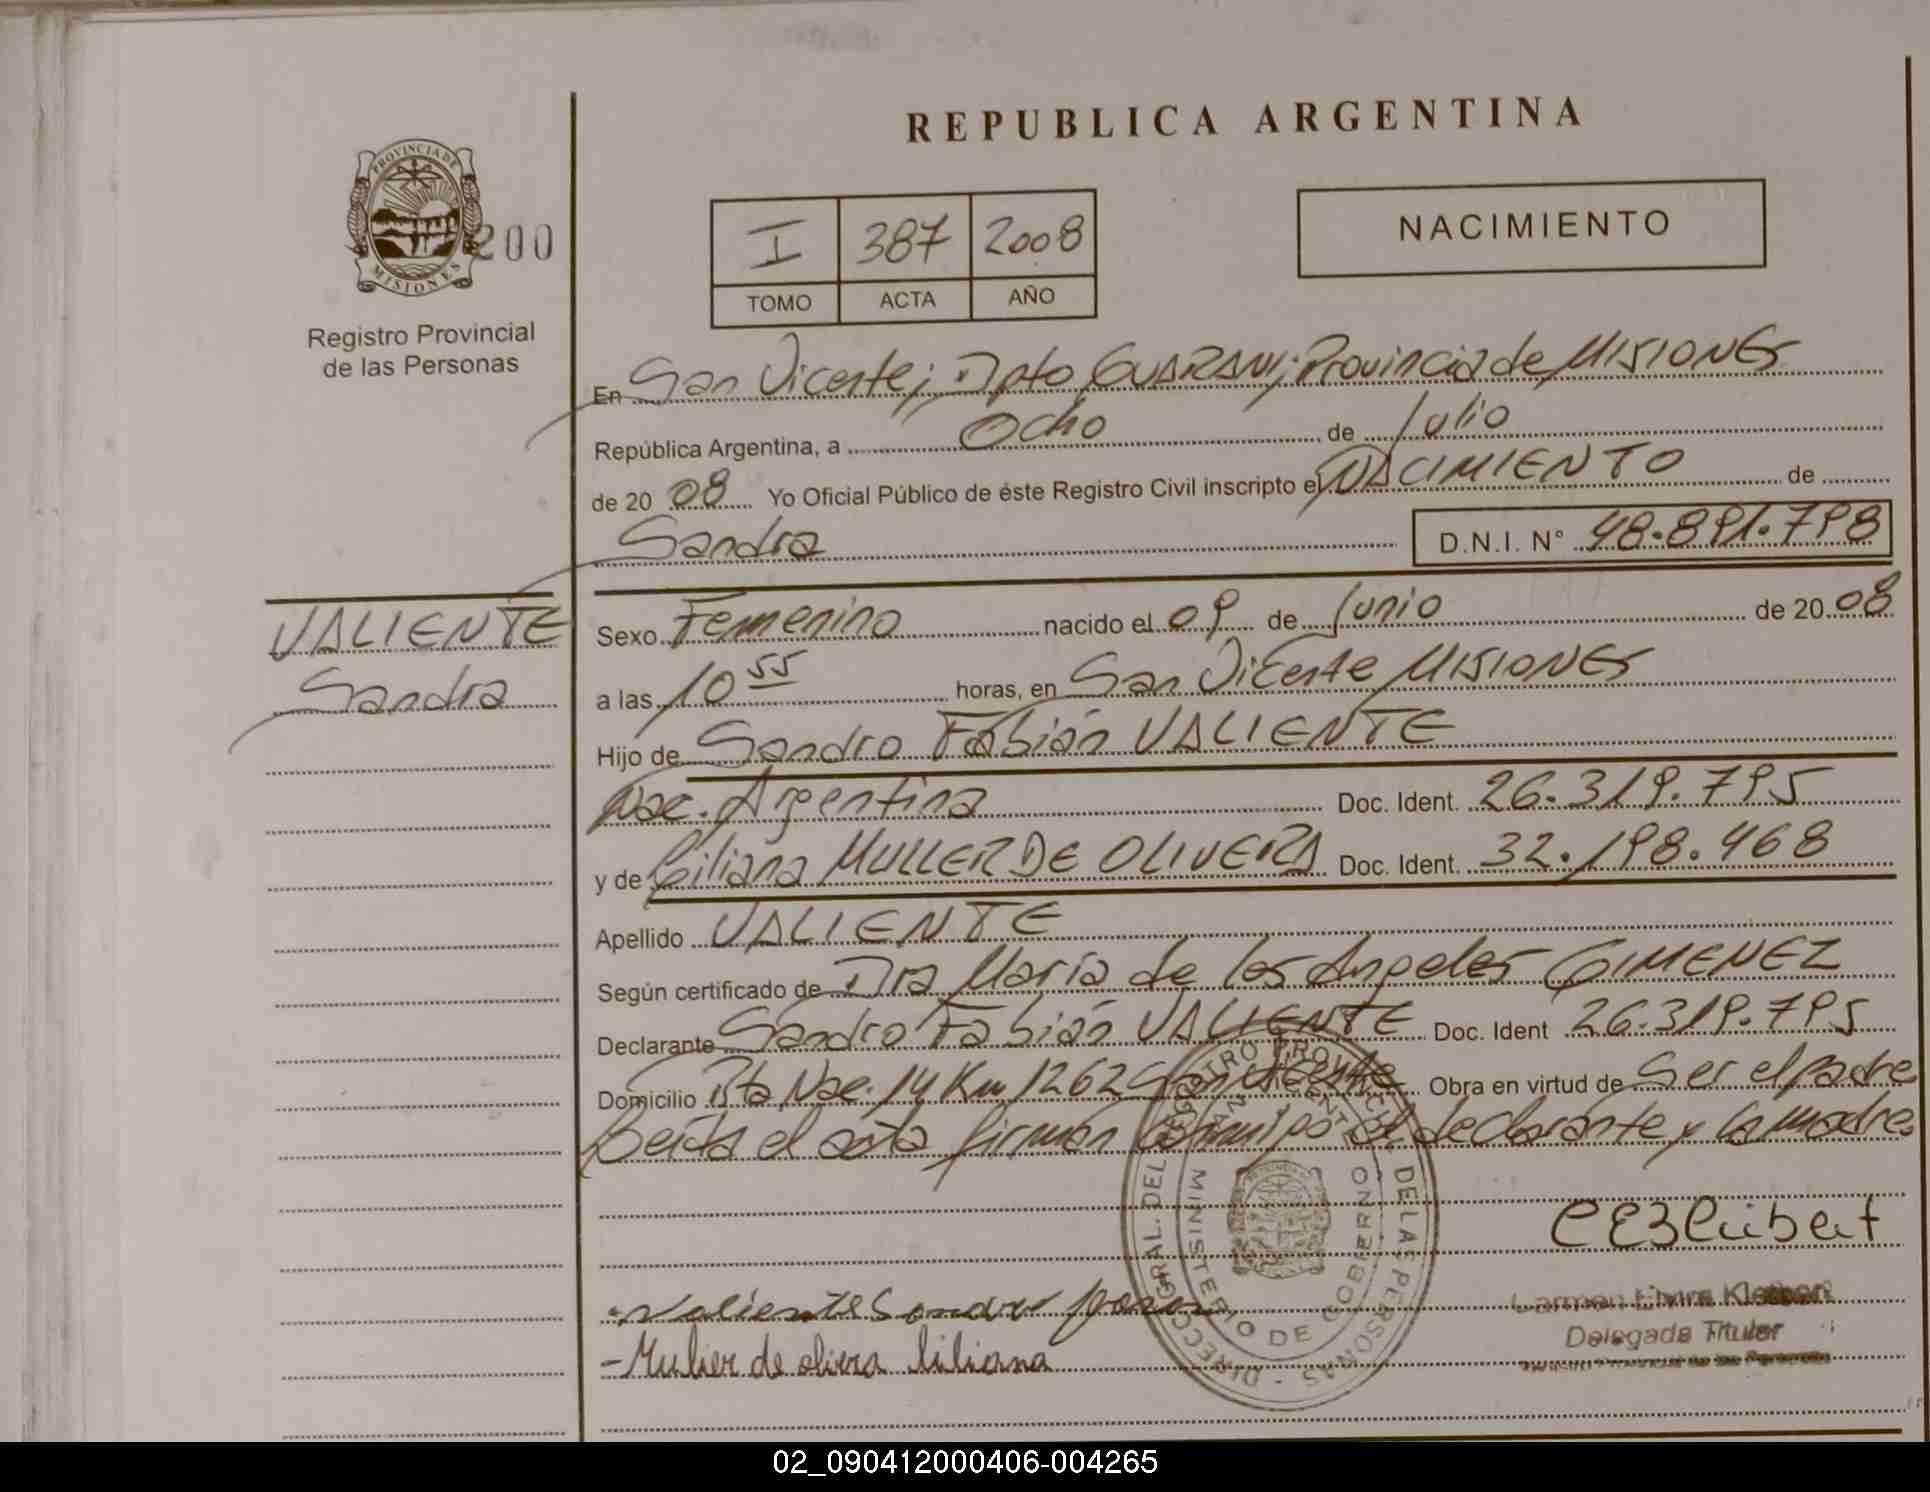 REPUBLICA ARGENTINA
PROVINCIA DE
MISIONES
200
Registro Provincial
de las Personas
I 387 2008
TOMO ACTA AÑO
NACIMIENTO
En San Vicente; Dpto GUARANI; Provincia de MISIONES
República Argentina, a Ocho de Julio
de 20 08 Yo Oficial Público de éste Registro Civil inscripto el NACIMIENTO de
Sandra D.N.I. N° 48.891.798
VALIENTE
Sandra
Sexo Femenino nacido el 09 de Junio de 20 08
a las 10 55 horas, en San Vicente MISIONES
Hijo de Sandro Fabián VALIENTE
Nac. Argentina Doc. Ident. 26.319.795
y de Liliana MULLER DE OLIVERA Doc. Ident. 32.198.468
Apellido VALIENTE
Según certificado de Dra María de los Angeles GIMENEZ
Declarante Sandro Fabián VALIENTE Doc. Ident 26.319.795
Domicilio Rta Nac. 14 Km 1262 San Vicente Obra en virtud de Ser el padre
Leída el acta firman conmigo el declarante y la madre
DIRECC. GRAL. DEL REGISTRO PROVINCIAL DE LAS PERSONAS
MINISTERIO DE GOBIERNO
Valiente Sandro
- Muller de olivera liliana
Carmen Elvira
Delegada Titular
Registro Provincial de las Personas
02_090412000406-004265